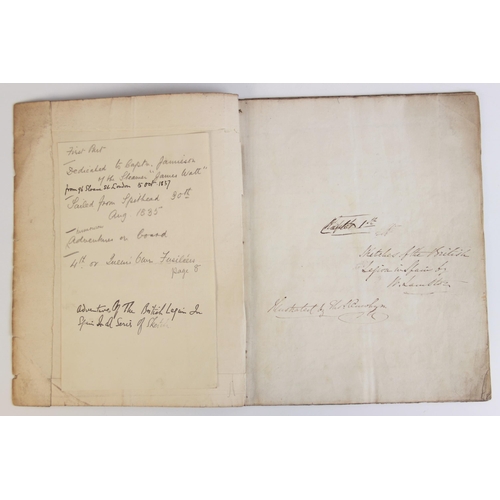 First Part
Dedicated to Captn. Jamieson
of the Steamer "James Watt"
from 96 Sloane St. London 5 Oct 1837
Sailed from Spithead 30th
Aug 1835
Adventures on board
4th or Queen's Own Fusiliers
page 8
Adventures Of The British Legion In
Spain In A Series of Sketch
Chapter 1st
Sketches of the British
Legion in Spain by
Illustrated by